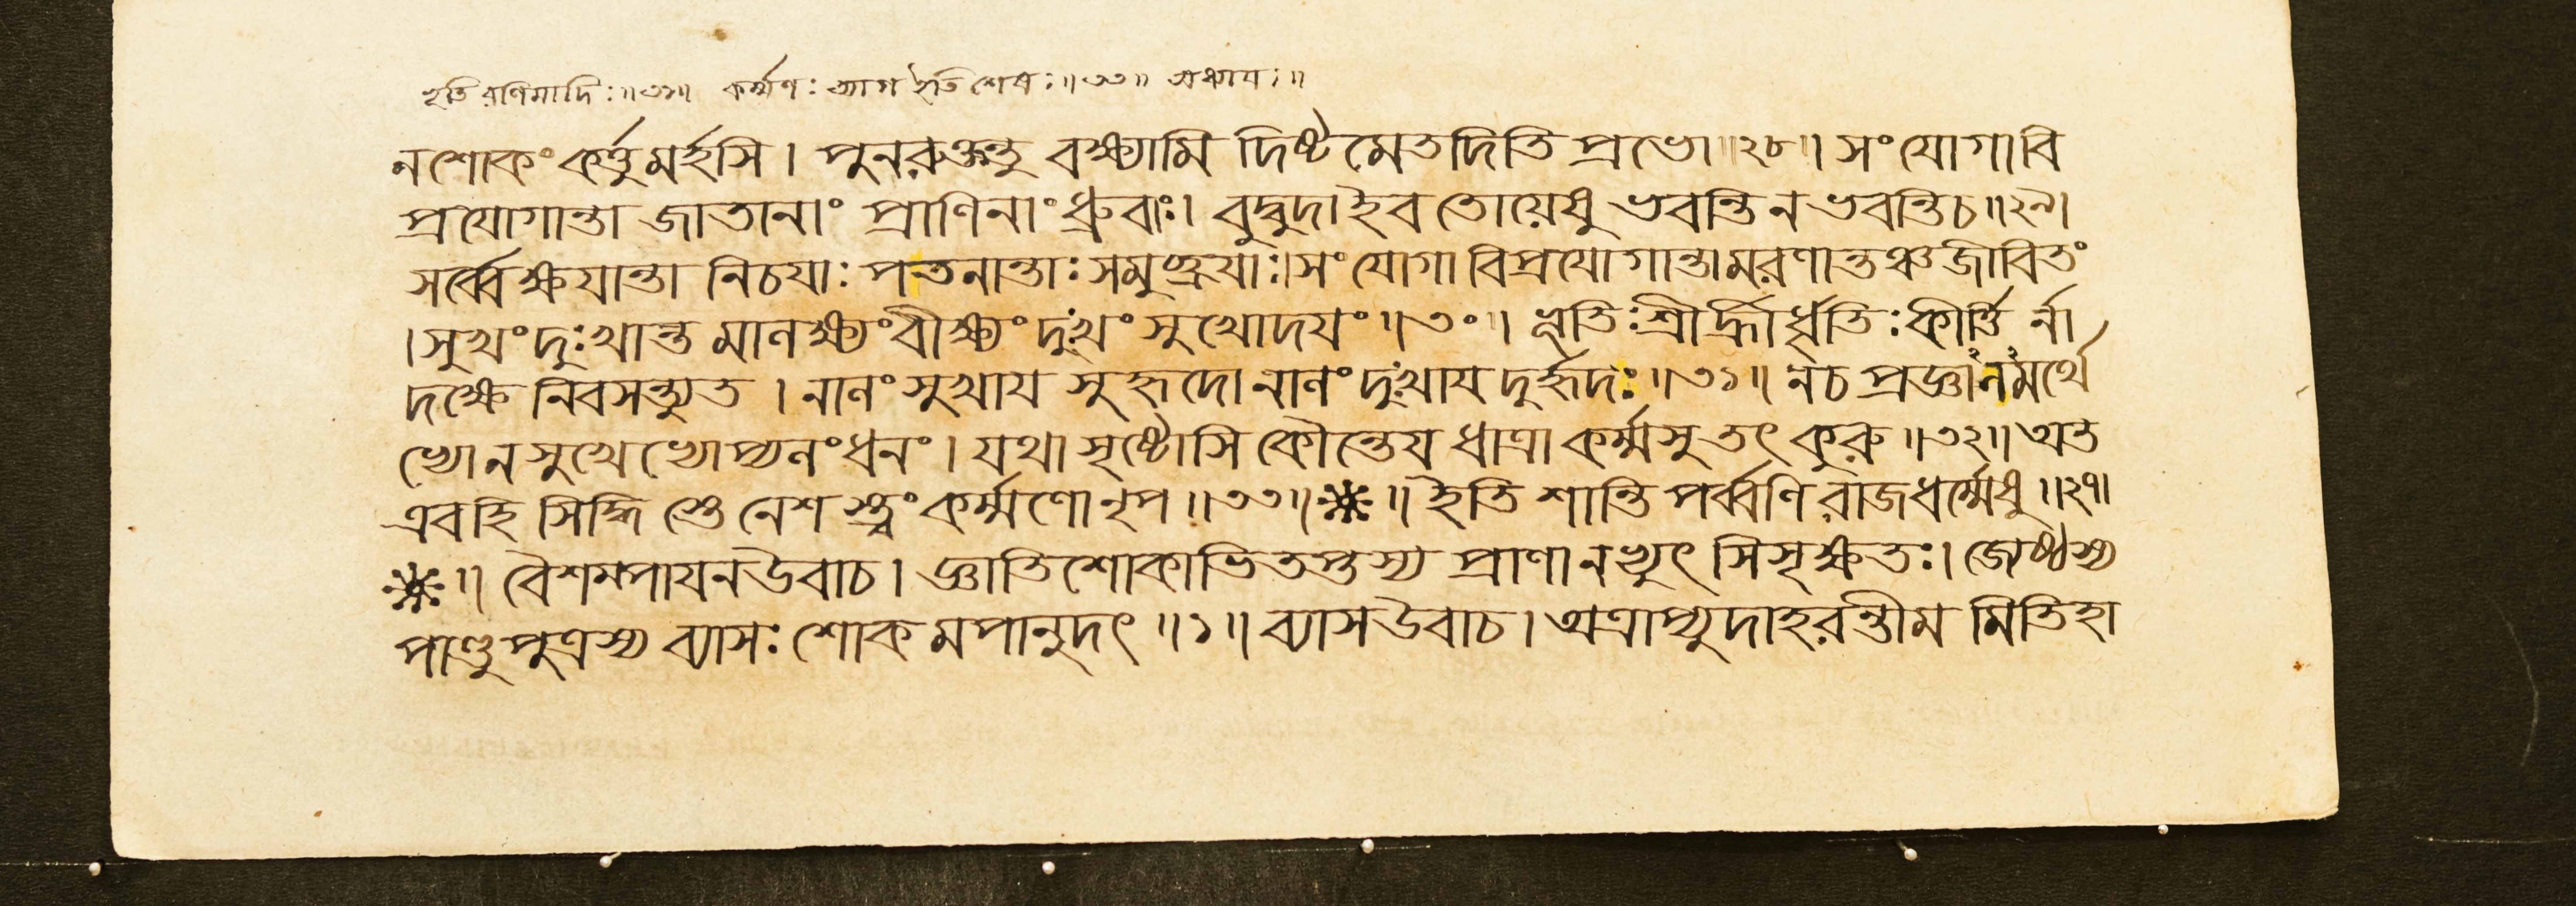 ভূতিরণিমাদিঃ॥৩১॥ কর্ম্মণঃ ত্যাগ ইতি শেষঃ॥৩৩॥ অধ্যায়ঃ॥
নশোকং কর্ত্তুমর্হসি। পুনরুক্তন্তু বক্ষ্যামি দিষ্টমেতদিতি প্রভো॥২৮॥ সংযোগাবি
প্রযোগান্তা জাতানাং প্রাণিনাং ধ্রুবাঃ। বুদ্বুদাইব তোয়েষু ভবন্তি নভবন্তিচ॥২৯।
সর্ব্বেক্ষযান্তা নিচযাঃ পতনান্তাঃ সমুচ্ছ্রযাঃ। সংযোগা বিপ্রযোগান্তা মরণান্তঞ্চজীবিতং
। সুখং দুঃখান্তমালক্ষ্যং বীক্ষ্যং দুঃখং সুখোদযং॥৩০॥ ভূতিঃ শ্রীর্হ্রীর্ধৃতিঃ কীর্ত্তির্না
দক্ষে নিবসন্ত্যুত। নালং সুখায সুহৃদো নালং দুঃখায দুর্হৃদঃ॥৩১॥ নচ প্রজ্ঞানমর্থে
ভ্যো ন সুখেভ্যোপ্যলং ধনং। যথা সৃষ্টোসি কৌন্তেয ধাত্রা কর্ম্মসু তৎ কুরু॥৩২॥ অত
এবহি সিদ্ধিস্তে নেশস্ত্বং কর্ম্মণো নৃপ॥৩৩॥ ॥ ইতি শান্তি পর্ব্বণি রাজধর্ম্মেষু॥২৭॥
॥ বৈশম্পাযনউবাচ। জ্ঞাতিশোকাভিতপ্তস্য প্রাণানভ্যুৎসিসৃক্ষতঃ। জ্যেষ্ঠস্য
পাণ্ডুপুত্রস্য ব্যাসঃ শোকমপানুদৎ॥১॥ ব্যাসউবাচ। অত্রাপ্যুদাহরন্তীমমিতিহা